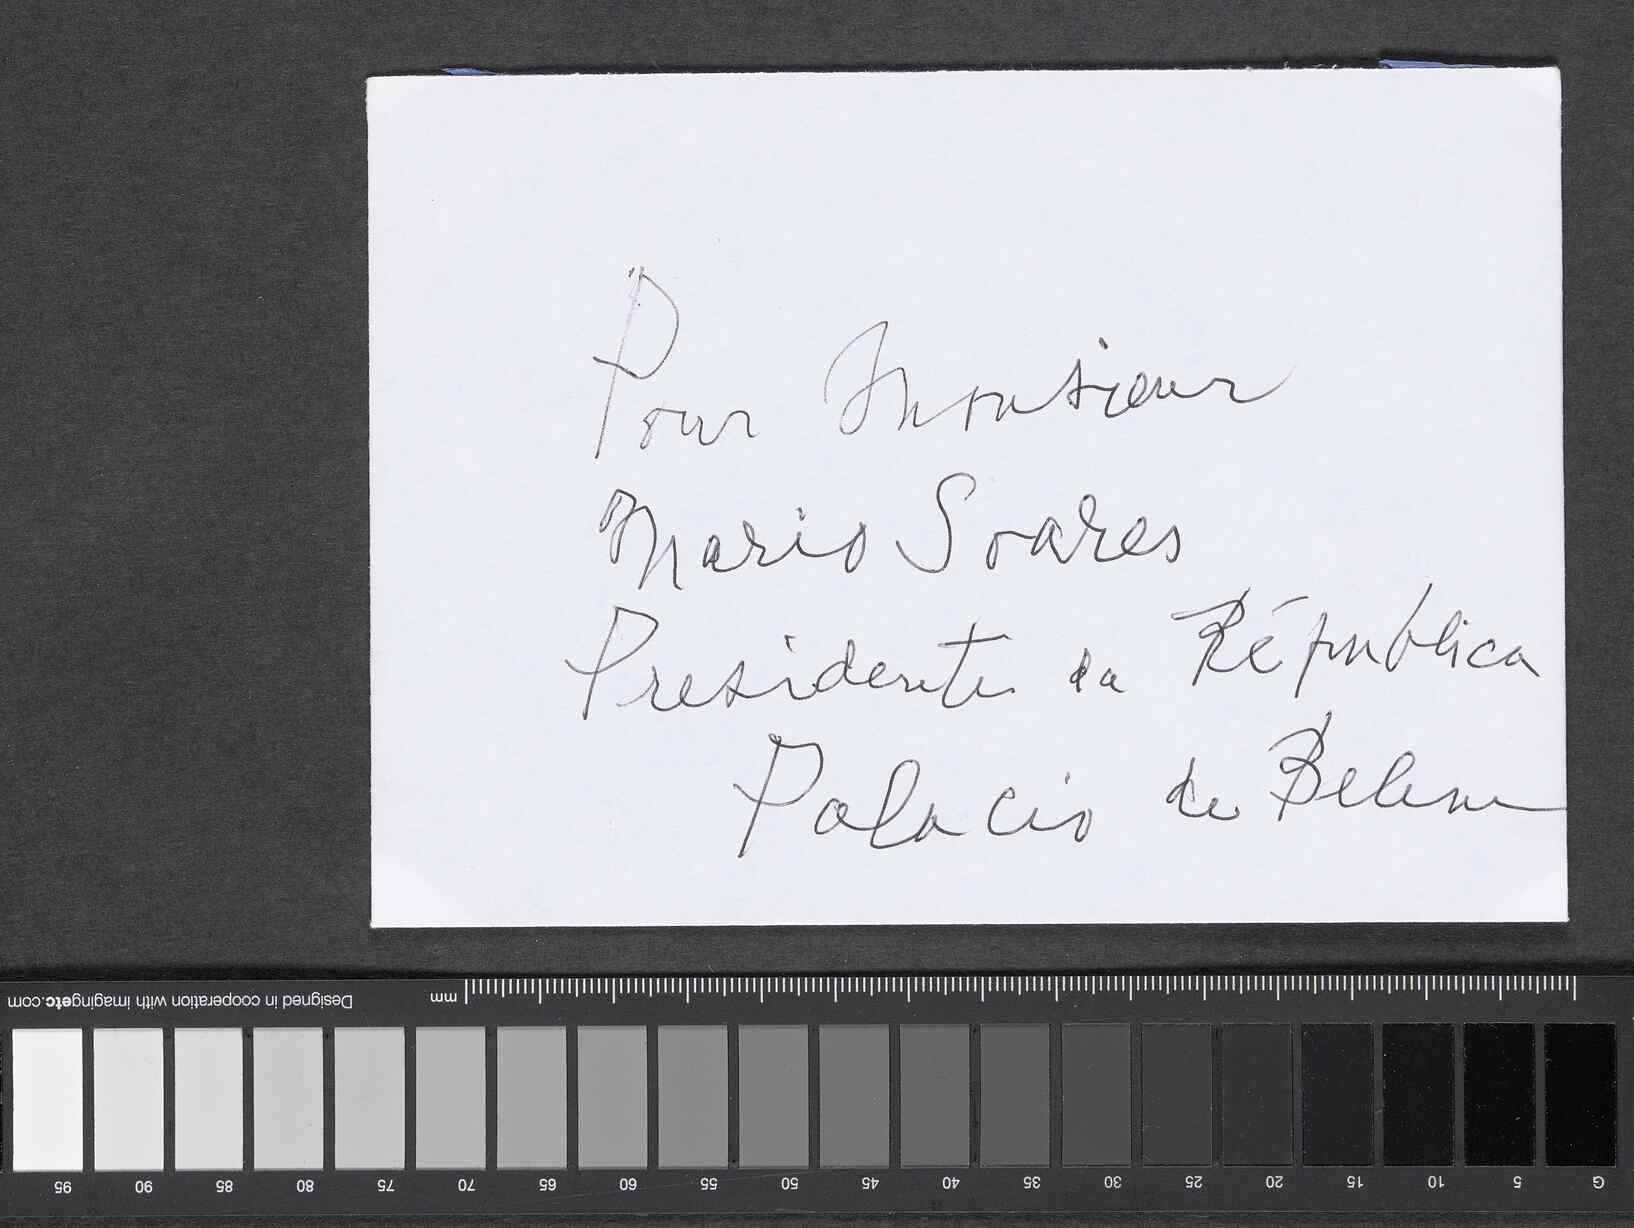 Pour Monsieur
Mario Soares
Presidente da Républica
Palacio de Belem
mm
Designed in cooperation with imagingetc.com
95 90 85 80 75 70 65 60 55 50 45 40 35 30 25 20 15 10 5 G